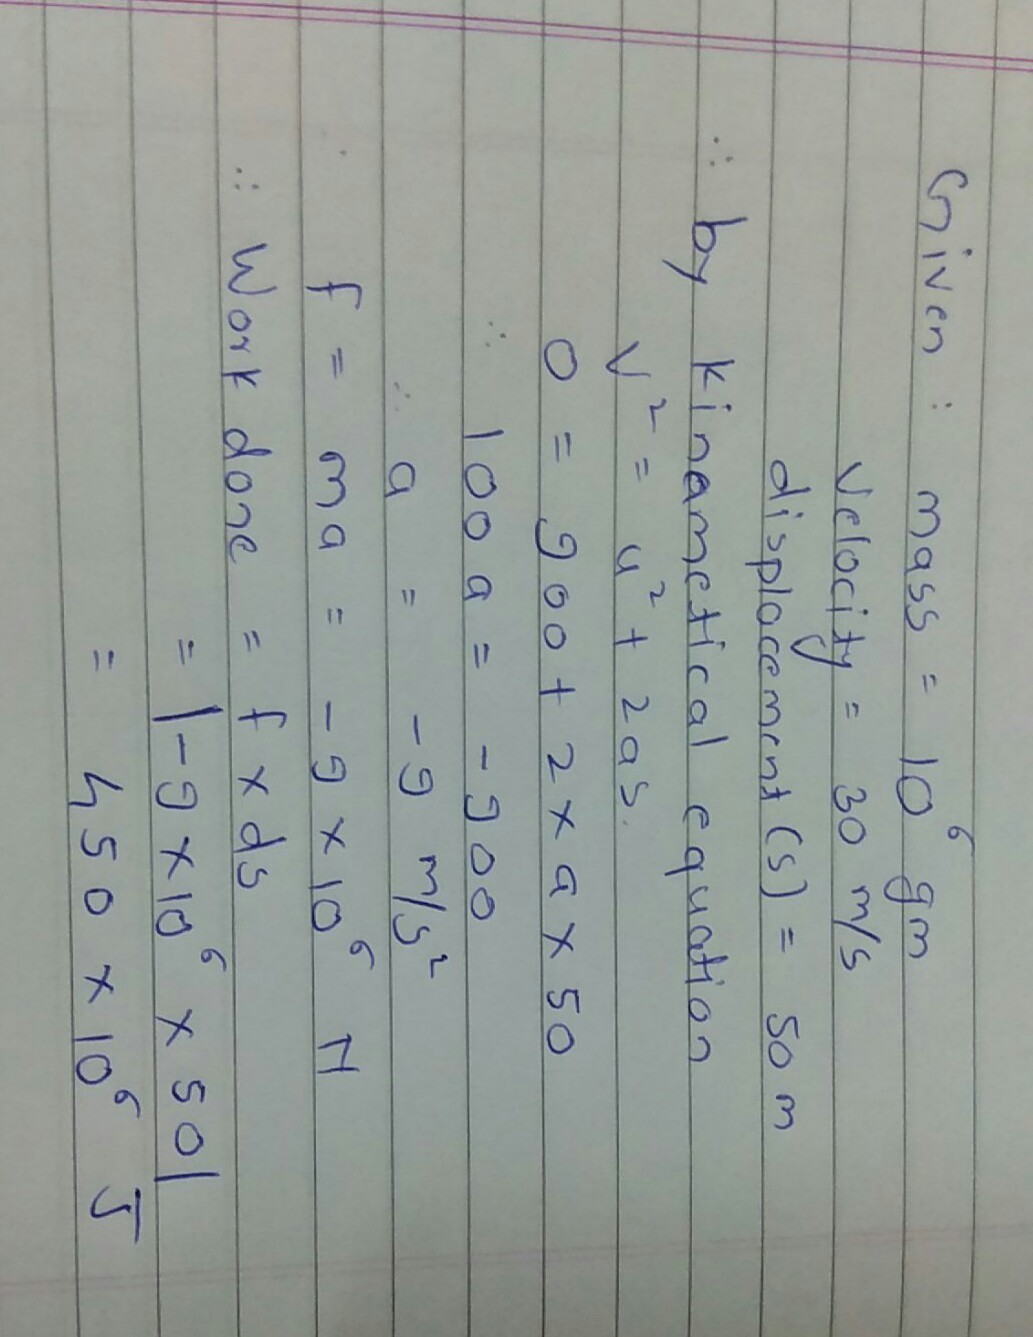 Given : mass = 10⁶ gm
Velocity = 30 m/s
displacement (s) = 50 m
∴ by kinametical equation
v² = u² + 2as.
0 = 900 + 2 × a × 50
∴ 100 a = -900
∴ a = -9 m/s²
f = ma = -9 × 10⁶ N
∴ Work done = f × ds
= |-9 × 10⁶ × 50|
= 450 × 10⁶ J